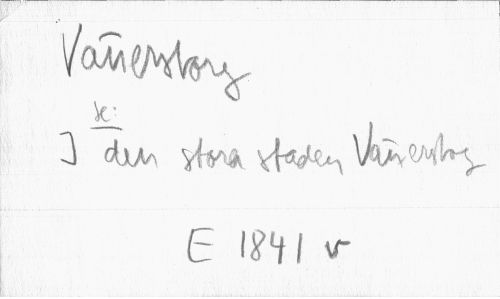 Vänersborg
sc:
I den stora staden Vänersborg
E 1841 v